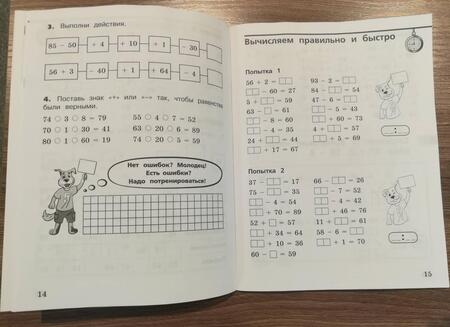 3. Выполни действия.
85 − 50 + 4 + 10 + 1 − 30
56 + 3 − 40 + 1 + 64 − 4
4. Поставь знак «+» или «−» так, чтобы равенства
были верными.
74 ○ 3 ○ 8 = 79 55 ○ 4 ○ 7 = 52
70 ○ 1 ○ 30 = 41 63 ○ 20 ○ 6 = 89
80 ○ 1 ○ 60 = 19 74 ○ 20 ○ 5 = 59
Нет ошибок? Молодец!
Есть ошибки?
Надо потренироваться!
14
Вычисляем правильно и быстро
Попытка 1
56 + 2 = □□ 93 − 2 = □□
□□ − 60 = 27 84 − □□ = 54
5 + □□ = 59 47 − 6 = □□
63 − □ = 61 □□ − 5 = 43
□□ − 8 = 60 □□ + 60 = 73
□□ − 4 = 35 4 + □□ = 57
24 + □□ = 44 □□ + 5 = 69
□□ + 17 = 67
Попытка 2
37 − □□ = 17 66 − □□ = 26
75 − □□ = 35 □□ − 7 = 52
□□ − 4 = 54 □□ − 4 = 42
□□ + 70 = 89 □□ + 46 = 76
52 + □ = 57 11 + □□ = 61
□□ + 34 = 64 58 − 6 = □□
□□ + 10 = 36 □□ + 1 = 70
60 − □ = 59
15